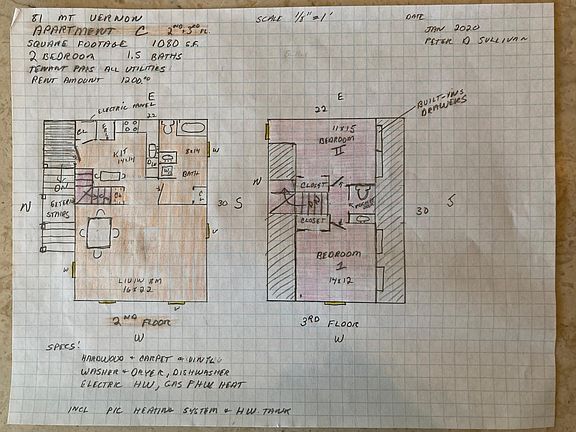 81 MT VERNON
SCALE 1/8" = 1'
DATE
APARTMENT C 2ND + 3RD FL.
JAN 2020
SQUARE FOOTAGE 1080 S.F.
PETER D SULLIVAN
2 BEDROOM 1.5 BATHS
TENANT PAYS ALL UTILITIES
RENT AMOUNT 1200.00
ELECTRIC PANEL
BUILT-INS
DRAWERS
E
22
E
22
CL
KIT
14x14
8x14
BATH
W
DN
EXTERIOR
STAIRS
N
30
S
W
LIVING RM
16x22
2ND FLOOR
W
11x15
BEDROOM
II
CLOSET
CLOSET
N
30
S
BEDROOM
1
14x12
3RD FLOOR
W
SPECS!
HARDWOOD + CARPET + VINYL
WASHER + DRYER, DISHWASHER
ELECTRIC HW, GAS FHW HEAT
INCL PIC HEATING SYSTEM & HW TANK